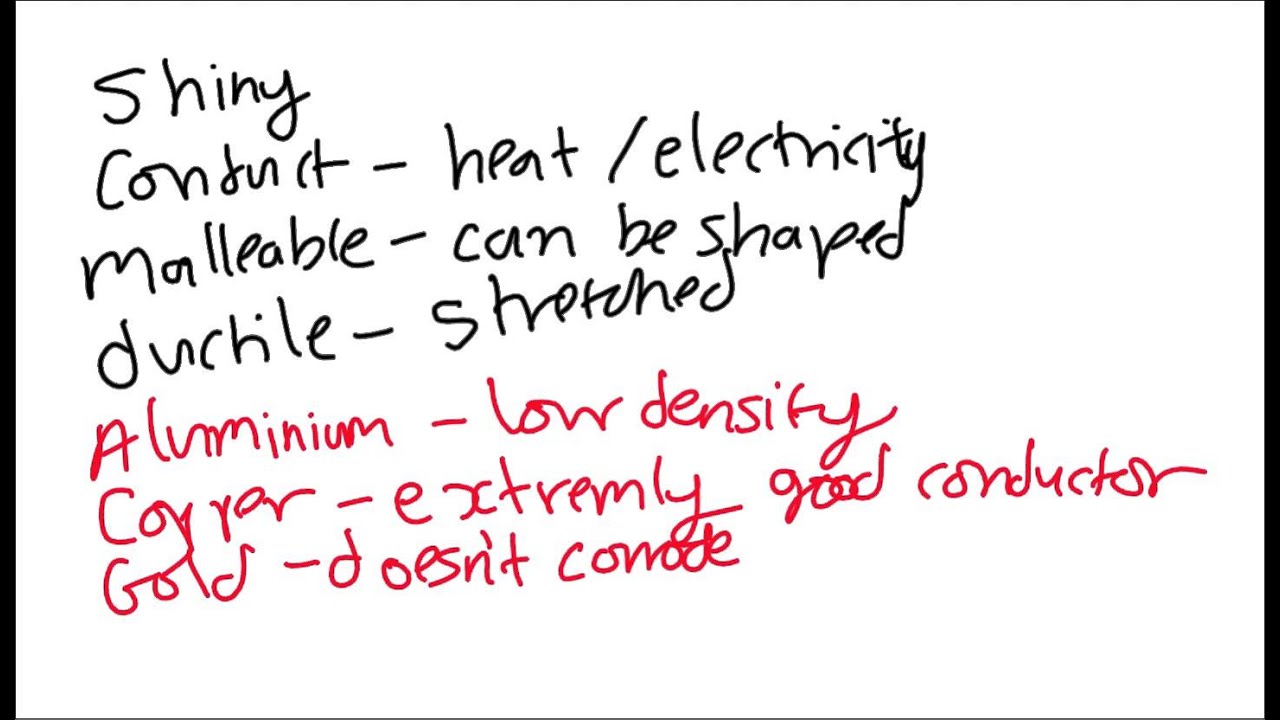 Shiny
Conduct - heat / electricity
Malleable - can be shaped
ductile - stretched
Aluminium - low density
Copper - extremly good conductor
Gold - doesn't corrode